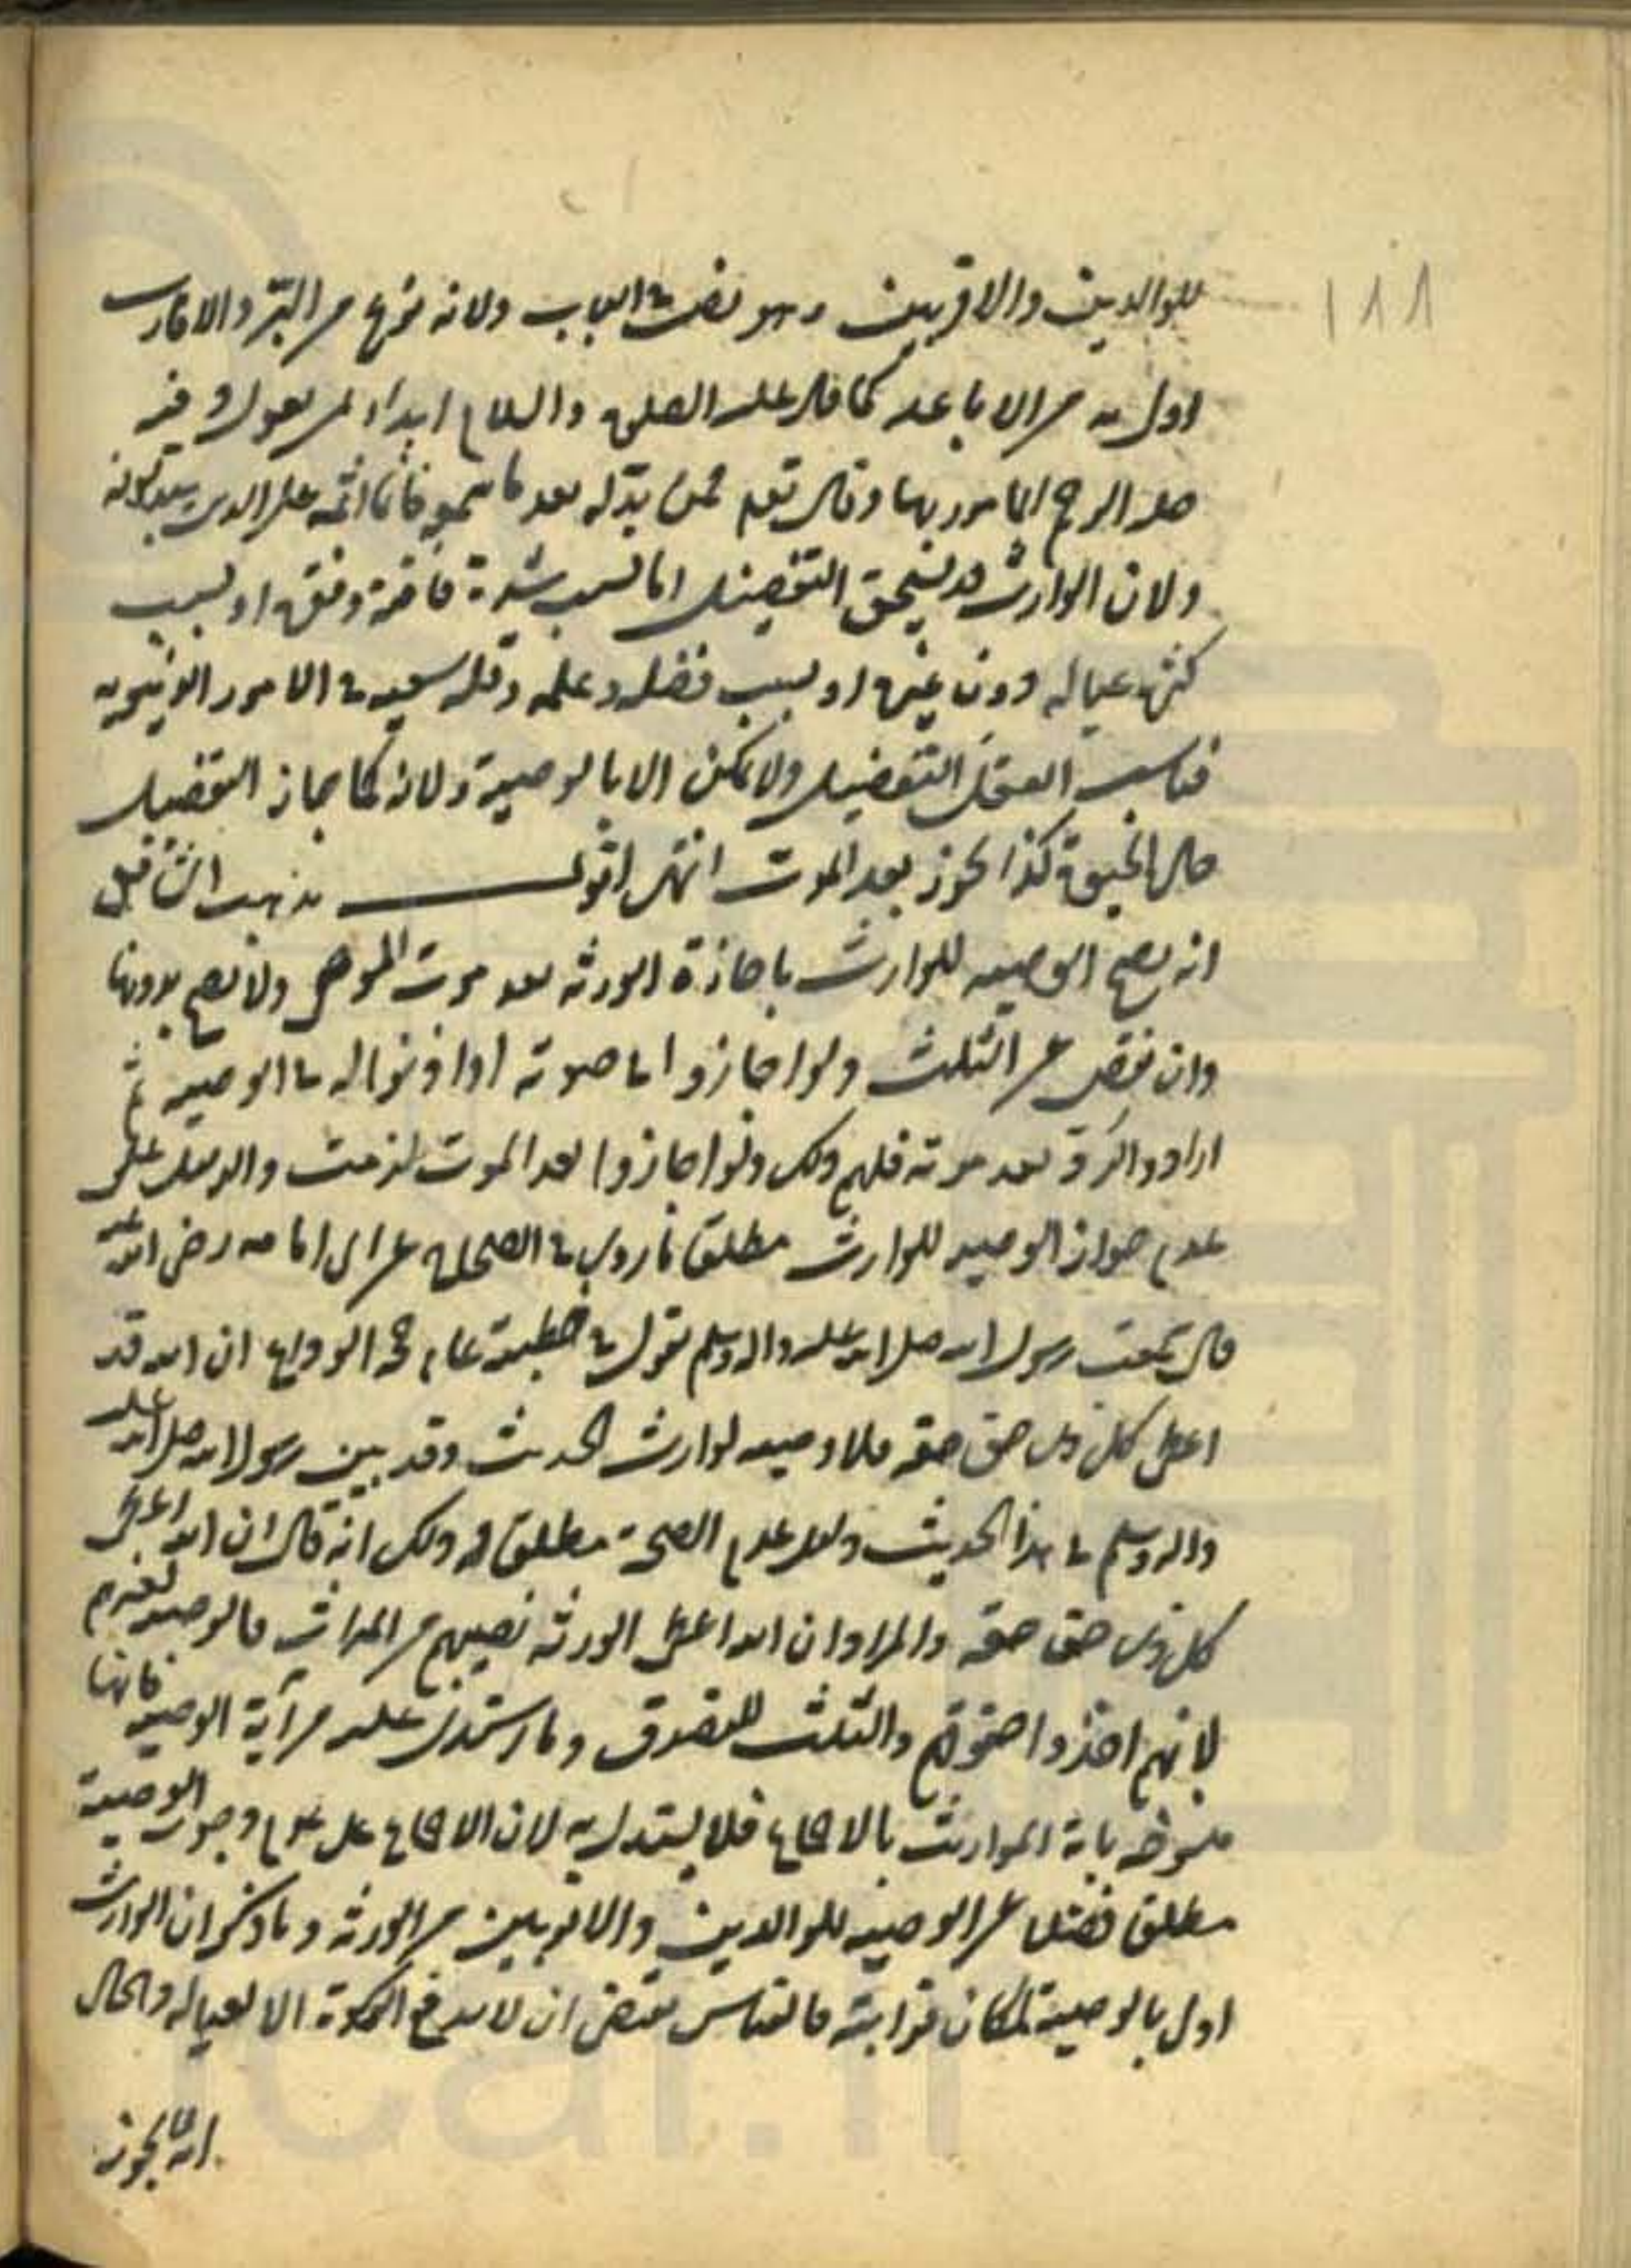 ١٨٨
للوالدين والاقربين وهو نص في الباب ولانه نوع من البر والاقارب
اولى به من الاباعد كما قال عليه الصلوة والسلام ابداء بمن تعول وفيه
صلة الرحم المامور بها وقال تعالى فمن بدله بعد ما سمعه فانما اثمه على الذين يبدلونه
ولان الوارث قد يستحق التفضيل اما لسبب شدة فاقته وفقره او بسبب
كثرة عياله دون غيره او بسبب فضله وعلمه وقلة سعيه في الامور الدنيوية
فناسب العقل التفضيل ولا يمكن الا بالوصية ولانه كما جاز التفضيل
حال الحيوة كذا يجوز بعد الموت انتهى اقول مذهب الشافعى
انه يصح الوصيه للوارث باجازة الورثه بعد موت الموصى ولا يصح بدونها
وان نقص عن الثلث ولو اجازوا ايام حيوته او اذنوا له في الوصيه ثم
ارادوا الرد بعد موته فلهم ذلك ولو اجازوا بعد الموت لزمت والدليل على
عدم جواز الوصيه للوارث مطلقا ما روى في الصحاح عن ابى امامه رضى الله عنه
قال سمعت رسول الله صلى الله عليه واله وسلم يقول في خطبته عام حجة الوداع ان الله قد
اعطى كل ذى حق حقه فلا وصيه لوارث الحديث وقد بين رسول الله صلى الله عليه
واله وسلم في هذا الحديث وجه عدم الصحة مطلقا وذلك انه قال ان الله اعطى
كل ذى حق حقه والمراد ان الله اعطى الورثه نصيبهم من الميراث فالوصيه لغيرهم
لانهم اخذوا حقوقهم والثلث للتصدق وما استدل عليه من آية الوصيه فانها
منسوخه باية المواريث بالاجماع فلا يستدل به لان الاجماع على عدم وجوب الوصية
مطلقا فضلا عن الوصيه للوالدين والاقربين من الورثه وما ذكر ان الوارث
اولى بالوصية لمكان قرابته فالقياس يقتضى ان لا يدفع الزكوة الا لعياله والحال
انه لا يجوز